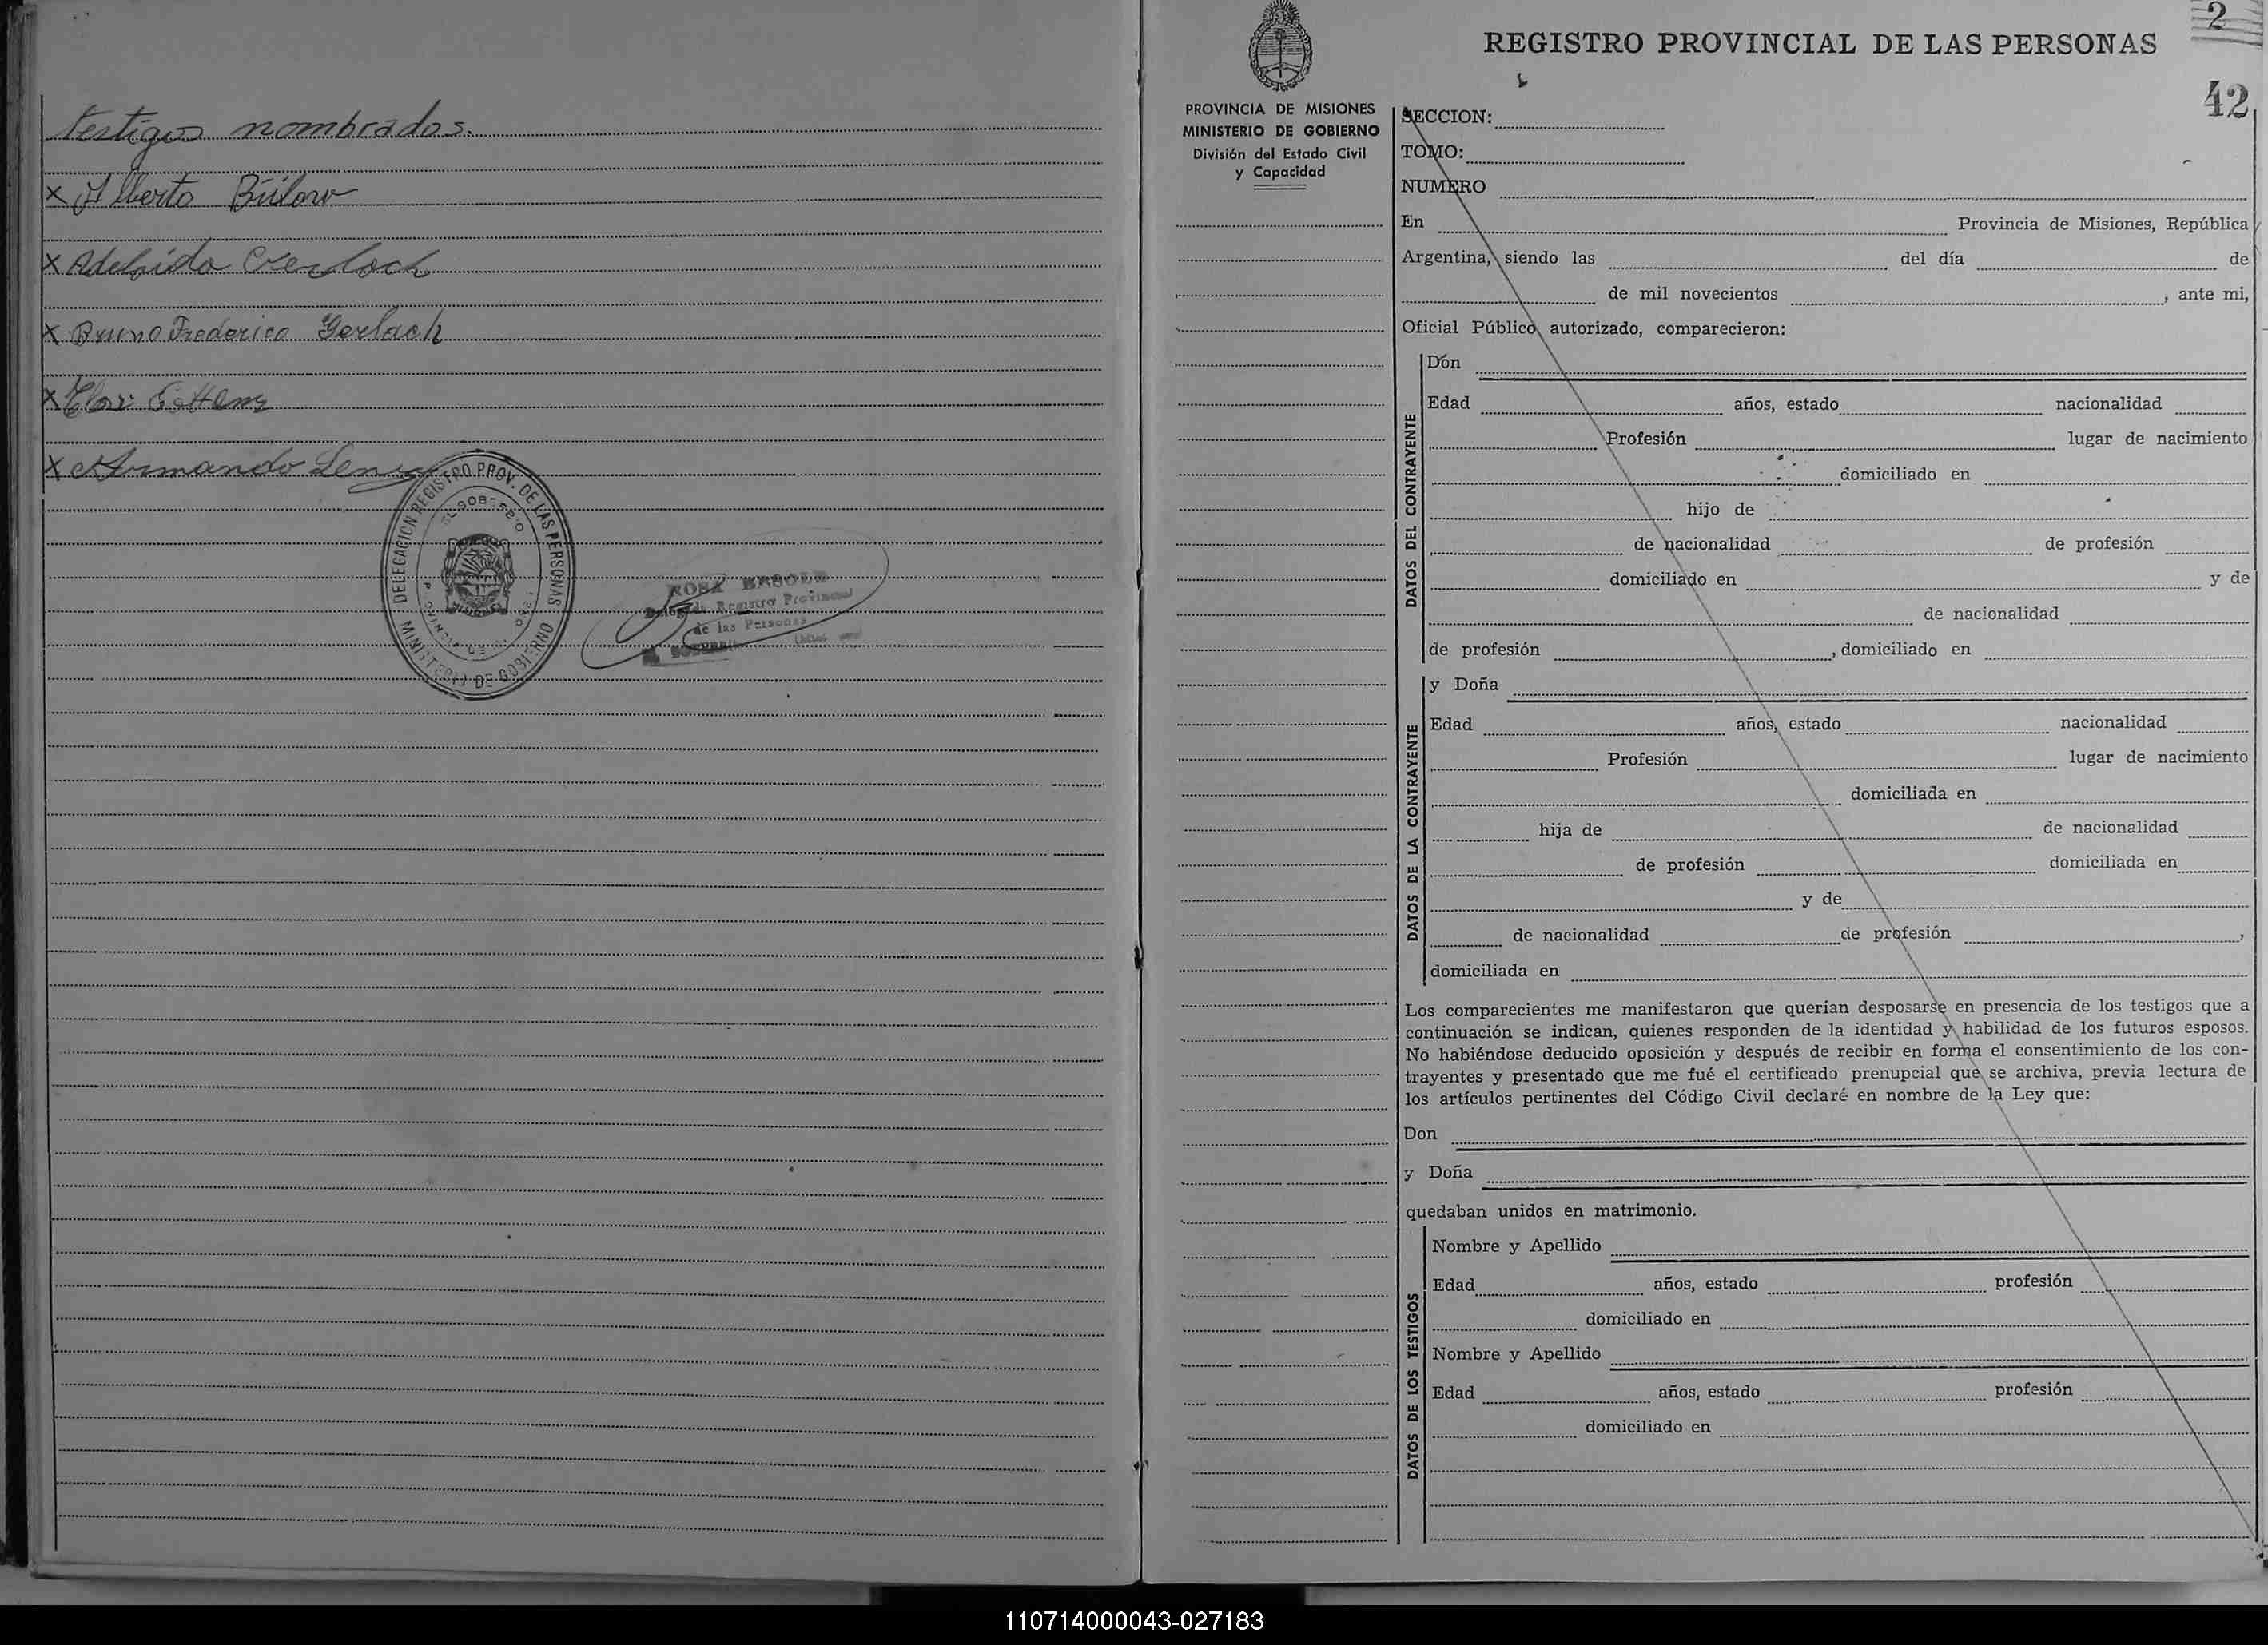 testigos nombrados.
x Alberto Bülow
x Adelaida Gerlach
x Bruno Frederico Gerlach
x
x Armando
DELEGACION REGISTRO PROV. DE LAS PERSONAS
MINISTERIO DE GOBIERNO
EL SOBERBIO
MISIONES
ROSA
Registro Provincial
de las Personas
EL SOBERBIO
2
REGISTRO PROVINCIAL DE LAS PERSONAS
42
PROVINCIA DE MISIONES
MINISTERIO DE GOBIERNO
División del Estado Civil
y Capacidad
SECCION:
TOMO:
NUMERO
En Provincia de Misiones, República
Argentina, siendo las del día de
de mil novecientos , ante mi,
Oficial Público autorizado, comparecieron:
DATOS DEL CONTRAYENTE
Dón
Edad años, estado nacionalidad
Profesión lugar de nacimiento
domiciliado en
hijo de
de nacionalidad de profesión
domiciliado en y de
de nacionalidad
de profesión , domiciliado en
DATOS DE LA CONTRAYENTE
y Doña
Edad años, estado nacionalidad
Profesión lugar de nacimiento
domiciliada en
hija de de nacionalidad
de profesión domiciliada en
y de
de nacionalidad de profesión ,
domiciliada en
Los comparecientes me manifestaron que querían desposarse en presencia de los testigos que a
continuación se indican, quienes responden de la identidad y habilidad de los futuros esposos.
No habiéndose deducido oposición y después de recibir en forma el consentimiento de los con-
trayentes y presentado que me fué el certificado prenupcial que se archiva, previa lectura de
los artículos pertinentes del Código Civil declaré en nombre de la Ley que:
Don
y Doña
quedaban unidos en matrimonio.
DATOS DE LOS TESTIGOS
Nombre y Apellido
Edad años, estado profesión
domiciliado en
Nombre y Apellido
Edad años, estado profesión
domiciliado en
110714000043-027183